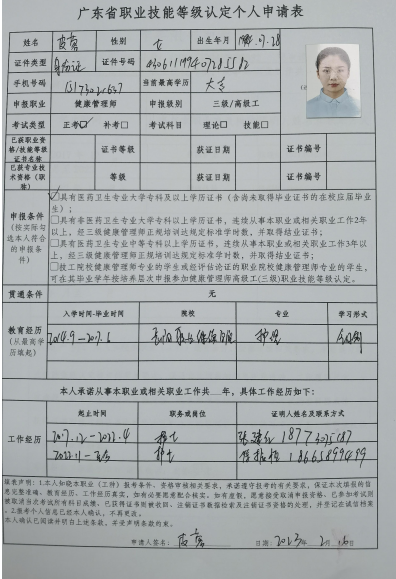 广东省职业技能等级认定个人申请表
姓名 性别 女 出生年月
证件类型 身份证 证件号码
手机号码 当前最高学历 大专
申报职业 健康管理师 申报级别 三级/高级工
考试类型 正考☑ 补考□ 考试科目 理论□ 技能□
已获职业资格/技能等级证书名称 证书等级 获证日期 证书编号
已获专业技术资格（职称） 等级 获证日期 证书编号
申报条件（按实际勾选本人符合的申报条件）
☑具有医药卫生专业大学专科及以上学历证书（含尚未取得毕业证书的在校应届毕业生）；
□具有非医药卫生专业大学专科以上学历证书，连续从事本职业或相关职业工作2年以上，经三级健康管理师正规培训达规定标准学时数，并取得结业证书；
□具有医药卫生专业中等专科以上学历证书，连续从事本职业或相关职业工作3年以上，经三级健康管理师正规培训达规定标准学时数，并取得结业证书；
□技工院校健康管理师专业的学生或经评估论证的职业院校健康管理师专业的学生，可在其毕业学年按培养层次申报参加健康管理师高级工(三级)职业技能等级认定。
贯通条件 无
教育经历（从最高学历填起）
入学时间-毕业时间 院校 专业 学习形式
2014.9-2017.6 护理 全日制
本人承诺从事本职业或相关职业工作共 年，具体工作经历如下：
工作经历
起止时间 职务或岗位 证明人姓名及联系方式
2017.12-2022.4 护士
2022.11-至今 护士 18665899499
郑重声明：1.本人知晓本职业（工种）报考条件、资格审核相关要求，承诺遵守报考的有关要求，保证本次填报的信
息完整准确，教育经历、工作经历真实，如有必要愿意配合核实；如有虚假，愿意接受取消申报资格、已参加考试则
被取消当次考试所有科目成绩、已获得证书则被收回、注销证书数据检索及注销证书资格的处理，并登记在诚信档案
。2.报考个人信息已经本人确认，不再更改。
本人确认已阅读并明白上述条款，并受声明条款约束。
申请人签名： 日期:2023年 2月 16日